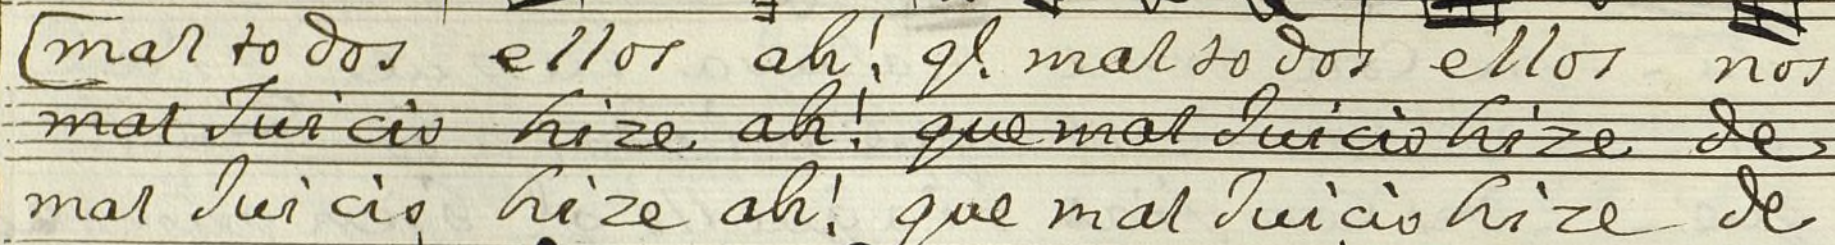 mal to dos ellos ah! ql. mal to dos ellos nos
mal Jui cio hize ah! que mal Juicio hize de
mal Jui cio hize ah! que mal Juicio hize de